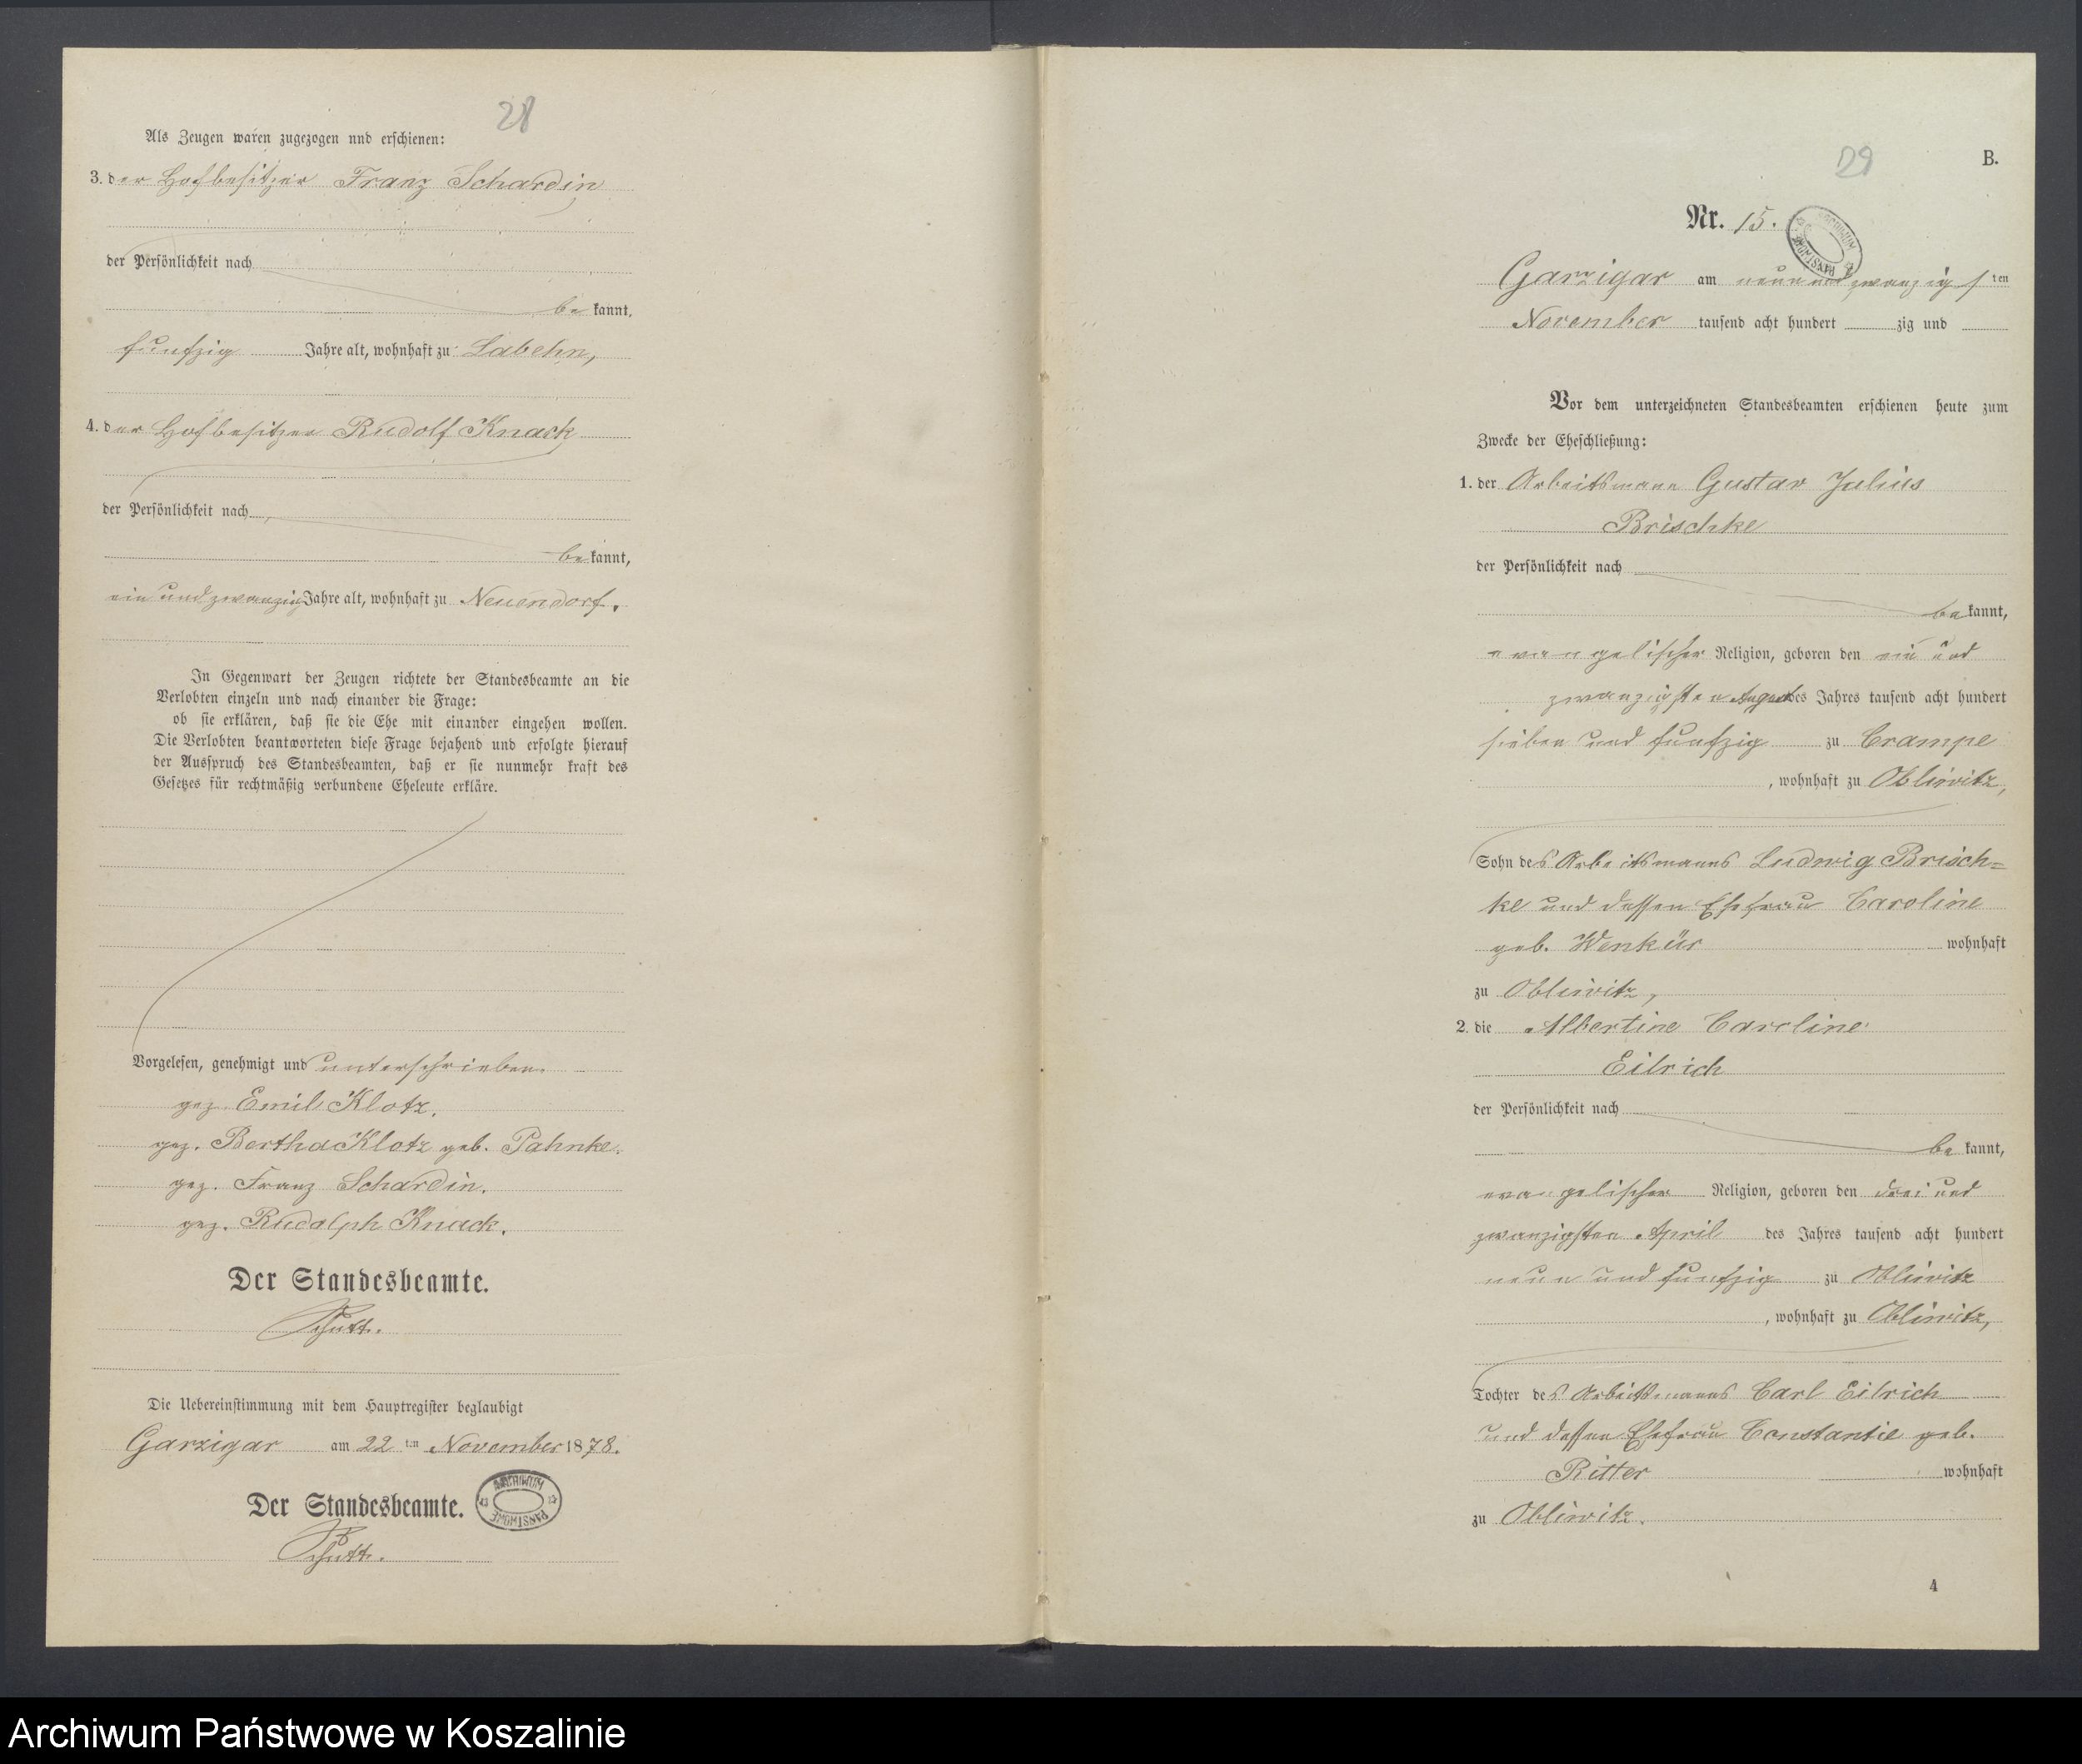 28
Als Zeugen waren zugezogen nnd erschienen:
3. der Hofbesitzer Franz Schardin,
der Persönlichkeit nach
be kannt,
funfzig Jahre alt, wohnhaft zu Labehn,
4. der Hofbesitzer Rudolf Knack
der Persönlichkeit nach
be kannt,
ein und zwanzig Jahre alt, wohnhaft zu Neuendorf.
In Gegenwart der Zeugen richtete der Standesbeamte an die
Verlobten einzeln und nach einander die Frage:
ob sie erklären, daß sie die Ehe mit einander eingehen wollen.
Die Verlobten beantworteten diese Frage bejahend und erfolgte hierauf
der Ausspruch des Standesbeamten, daß er sie nunmehr kraft des
Gesetzes für rechtmäßig verbundene Eheleute erkläre.
Vorgelesen, genehmigt und unterschrieben.
gez. Emil Klotz.
gez. Bertha Klotz geb. Pahnke.
gez. Franz Schardin.
gez. Rudolph Knack.
Der Standesbeamte.
Die Uebereinstimmung mit dem Hauptregister beglaubigt
Garzigar am 22 ten November 1878.
Der Standesbeamte.
ARCHIWUM PAŃSTWOWE
29
B.
Nr. 15.
ARCHIWUM PAŃSTWOWE
Garzigar am neun und zwanzigsten
November tausend acht hundert zig und
Vor dem unterzeichneten Standesbeamten erschienen heute zum
Zwecke der Eheschließung:
1. der Arbeitsmann Gustav Julius
Brischke
der Persönlichkeit nach
be kannt,
evangelischer Religion, geboren den ein und
zwanzigsten August des Jahres tausend acht hundert
sieben und funfzig zu Crampe
, wohnhaft zu Obliwitz,
Sohn des Arbeitsmanns Ludwig Brisch=
ke und dessen Ehefrau Caroline
geb. Wenkür wohnhaft
zu Obliwitz,
2. die Albertine Caroline
Eilrich
der Persönlichkeit nach
be kannt,
evangelischer Religion, geboren den drei und
zwanzigsten April des Jahres tausend acht hundert
neun und funfzig zu Obliwitz
, wohnhaft zu Obliwitz,
Tochter des Arbeitsmanns Carl Eilrich
und dessen Ehefrau Constantie geb.
Ritter wohnhaft
zu Obliwitz.
4
Archiwum Państwowe w Koszalinie